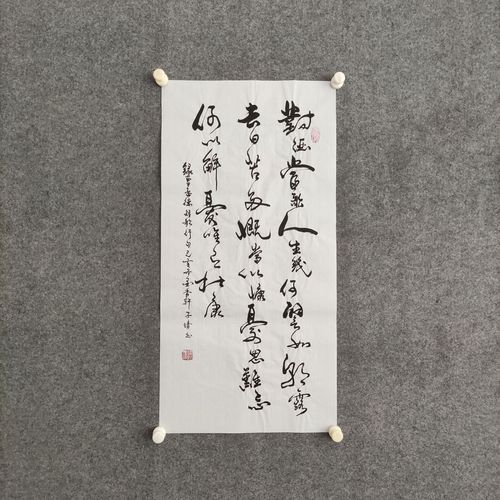 對酒當歌人生幾何譬如朝露
去日苦多慨當以慷憂思難忘
何以解憂唯有杜康
錄曹孟德短歌行句己亥